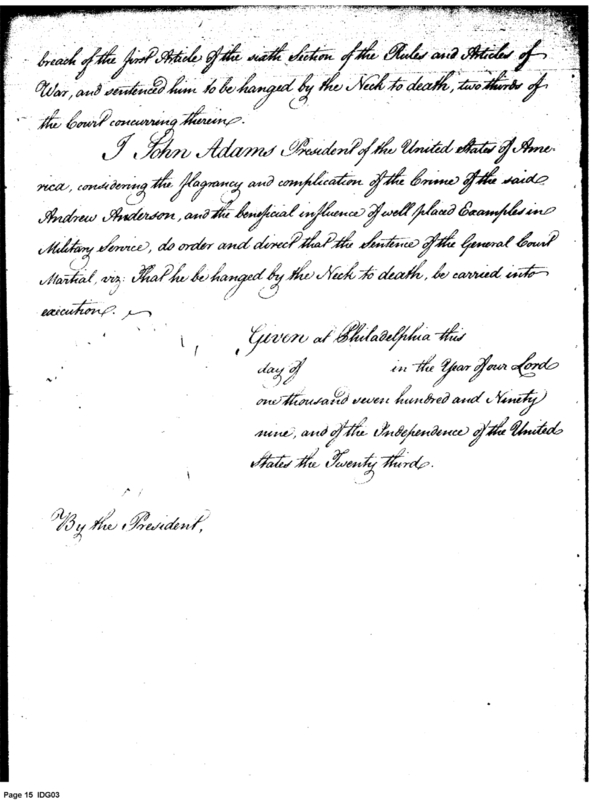 breach of the first Article of the sixth Section of the Rules and Articles of
War, and sentenced him to be hanged by the Neck to death, two thirds of
the Court concurring therein.
I John Adams President of the United States of Ame-
rica, considering the flagrancy and complication of the Crime of the said
Andrew Anderson, and the beneficial influence of well placed Examples in
Military Service, do order and direct that the Sentence of the General Court
Martial, viz: That he be hanged by the Neck to death, be carried into
execution.
Given at Philadelphia this
day of in the Year of our Lord
one thousand seven hundred and Ninety
nine, and of the Independence of the United
States the Twenty third.
By the President,
Page 15 IDG03